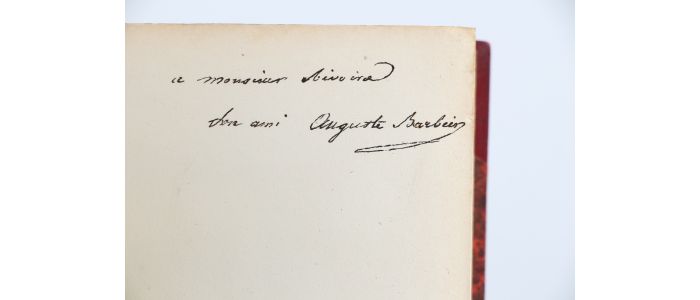 a monsieur Rivoire
son ami Auguste Barbier